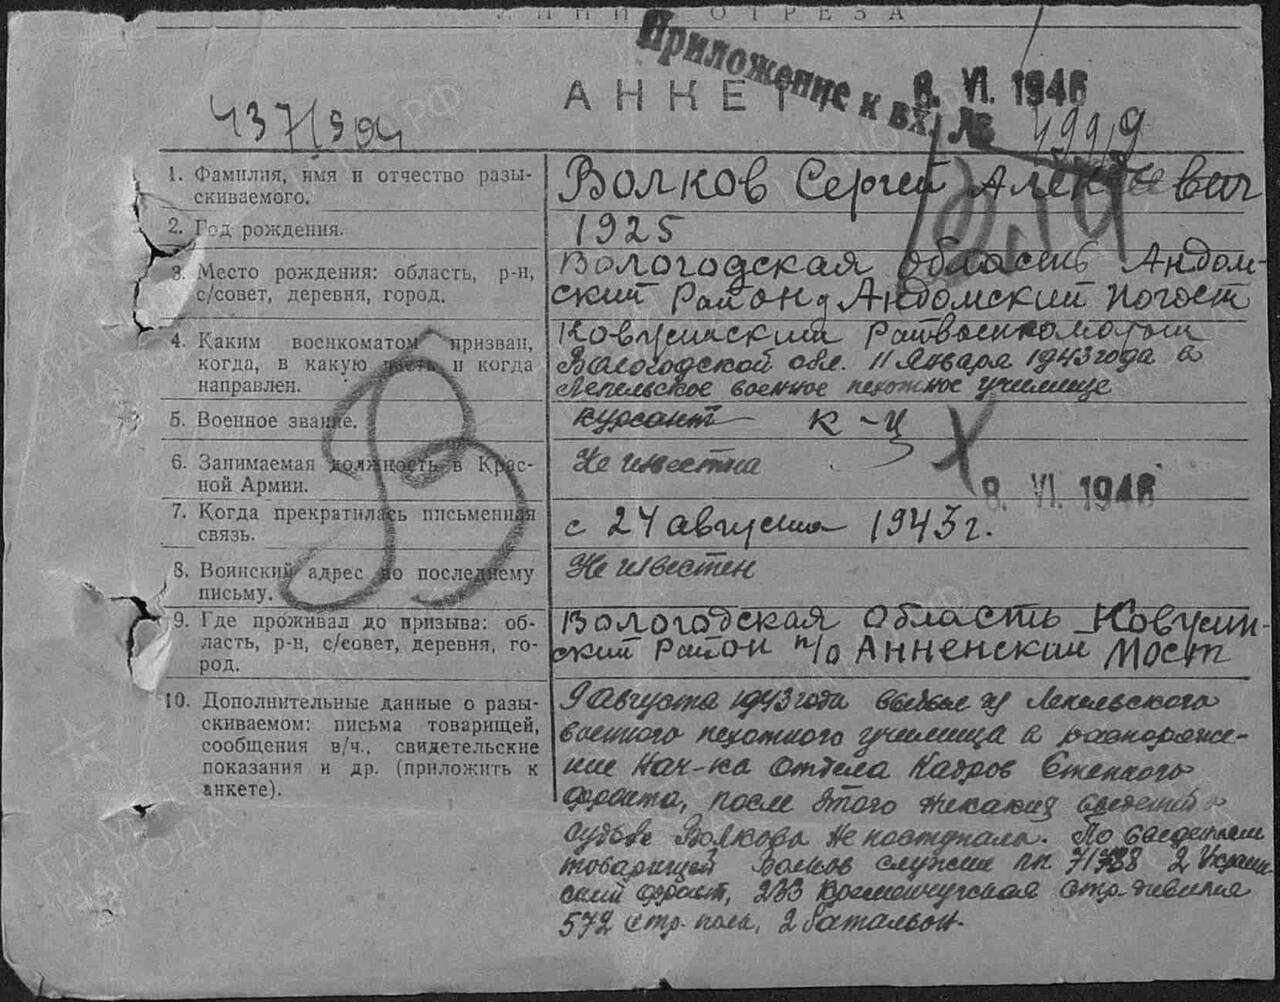 ЛИНИЯ ОТРЕЗА
Приложение к вх. №
8. VI. 1946
АНКЕТ
1. Фамилия, имя и отчество разы-
скиваемого.
Волков Сергей Алексеевич
2. Год рождения.
1925
3. Место рождения: область, р-н,
с/совет, деревня, город.
Вологодская область Андом-
ский Район д Андомский Погост
4. Каким военкоматом призван,
когда, в какую часть и когда
направлен.
Ковжинским Райвоенкоматом
Вологодской обл. 11 Января 1943 года в
Лепельское военное пехотное училище
5. Военное звание.
курсант к-ц
6. Занимаемая должность в Крас-
ной Армии.
Не известна
8. VI. 1946
7. Когда прекратилась письменная
связь.
с 24 августа 1943 г.
8. Воинский адрес по последнему
письму.
Не известен
9. Где проживал до призыва: об-
ласть, р-н, с/совет, деревня, го-
род.
Вологодская область Ковжин-
ский Район п/о Анненский Мост
10. Дополнительные данные о разы-
скиваемом: письма товарищей,
сообщения в/ч., свидетельские
показания и др. (приложить к
анкете).
9 Августа 1943 года выбыл из Лепельского
военного пехотного училища в распоряже-
ние Нач-ка отдела Кадров Степного
фронта, после этого никаких сведений о
судьбе Волкова не поступало. По сведениям
товарищей Волков служил пп 2 Украин-
ский фронт, 233 Кременчугская стр. дивизия
572 стр. полк, 2 батальон.